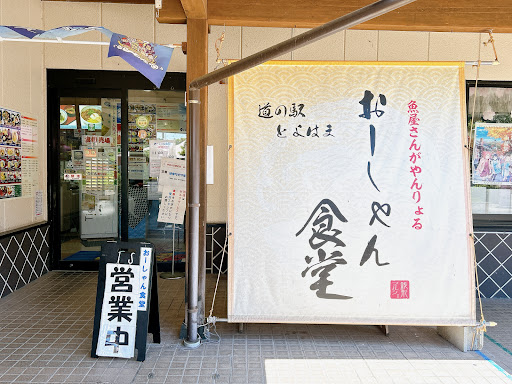 魚屋さんがやんりょる
おーしゃん
食堂
道の駅
とよはま
おーしゃん食堂
営業中